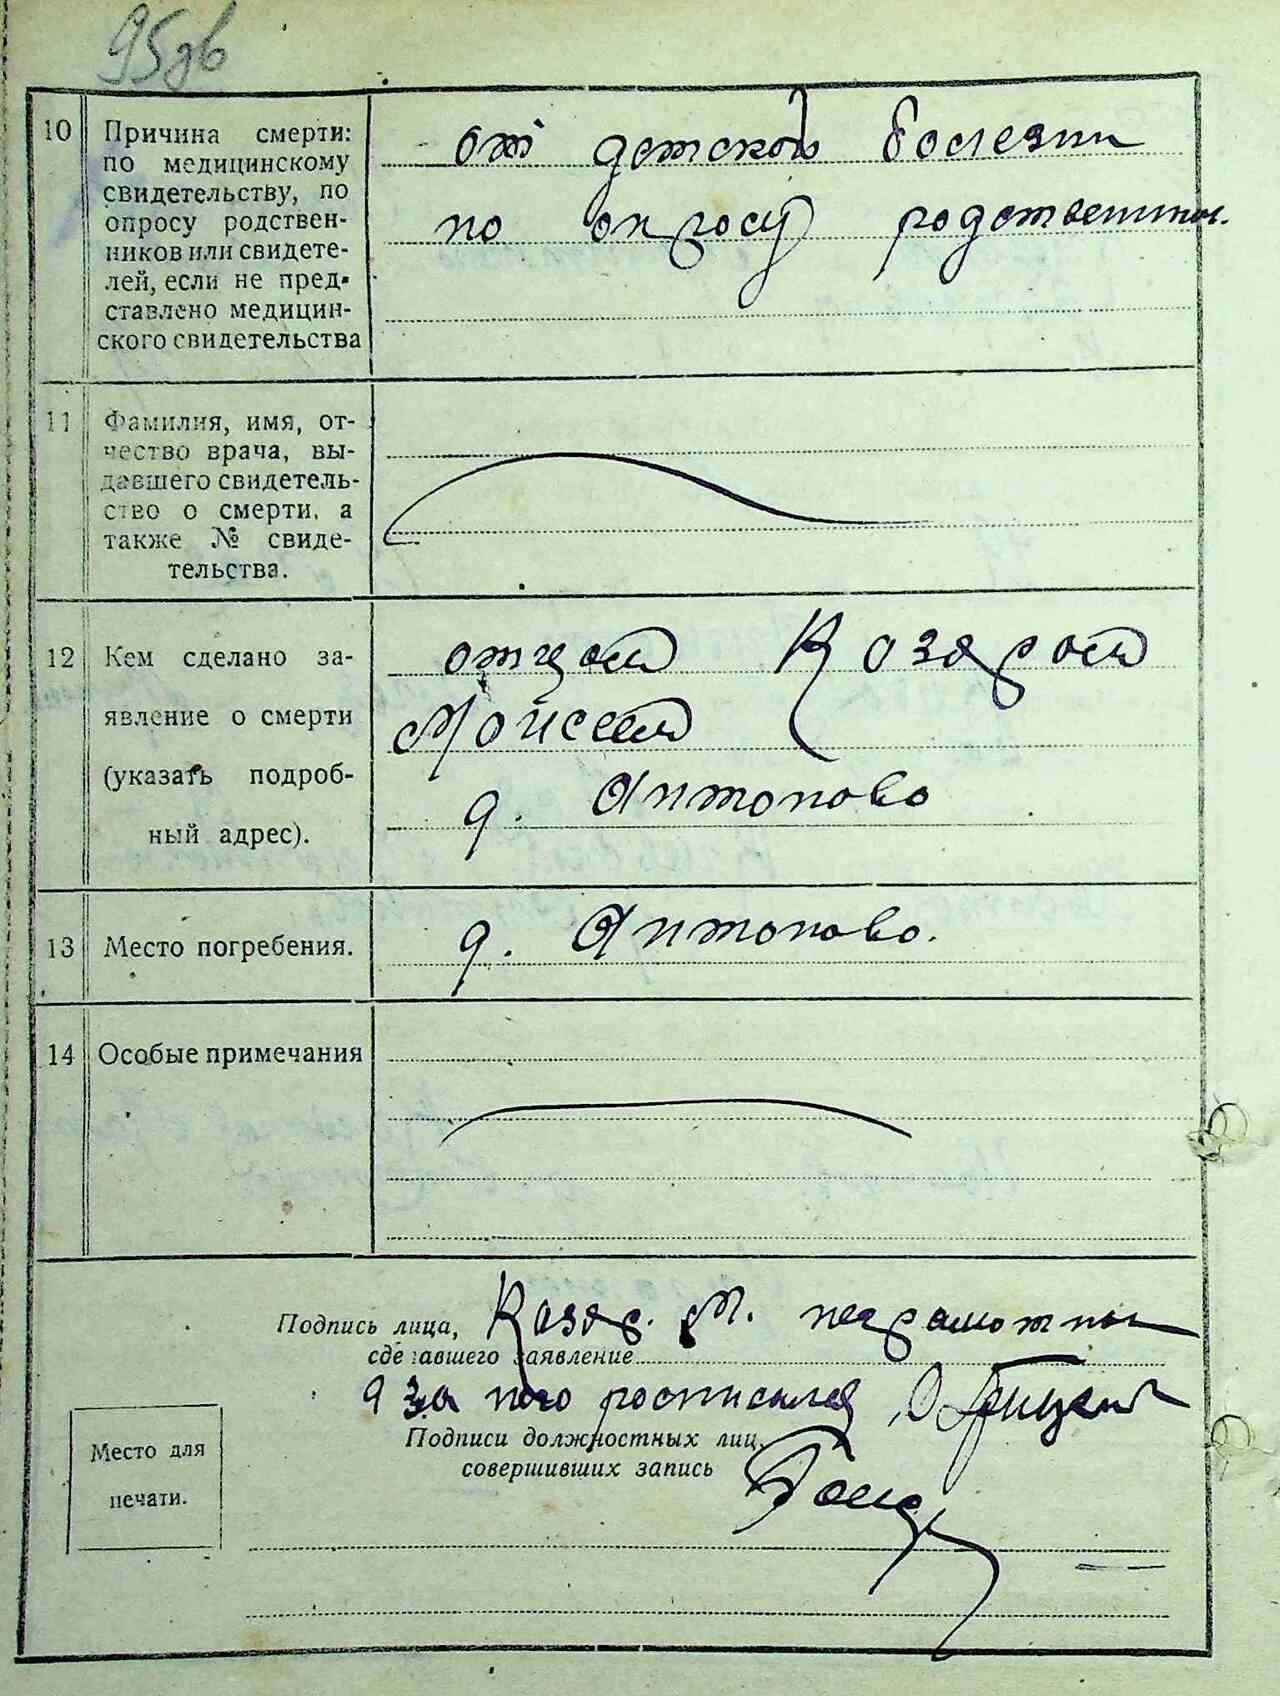 95об
10 Причина смерти: по медицинскому свидетельству, по опросу родственников или свидетелей, если не представлено медицинского свидетельства
от детской болезни
по опросу родственник.
11 Фамилия, имя, от-
чество врача, вы-
давшего свидетель-
ство о смерти, а
также № свиде-
тельства.
12 Кем сделано за-
явление о смерти
(указать подроб-
ный адрес).
отцом Козяром
Мойсеем
д. Антоново
13 Место погребения.
д. Антоново.
14 Особые примечания
Подпись лица,
сделавшего заявление
Козяр. М. неграмотны
а за него росписался
Подписи должностных лиц,
совершивших запись
Место для
печати.